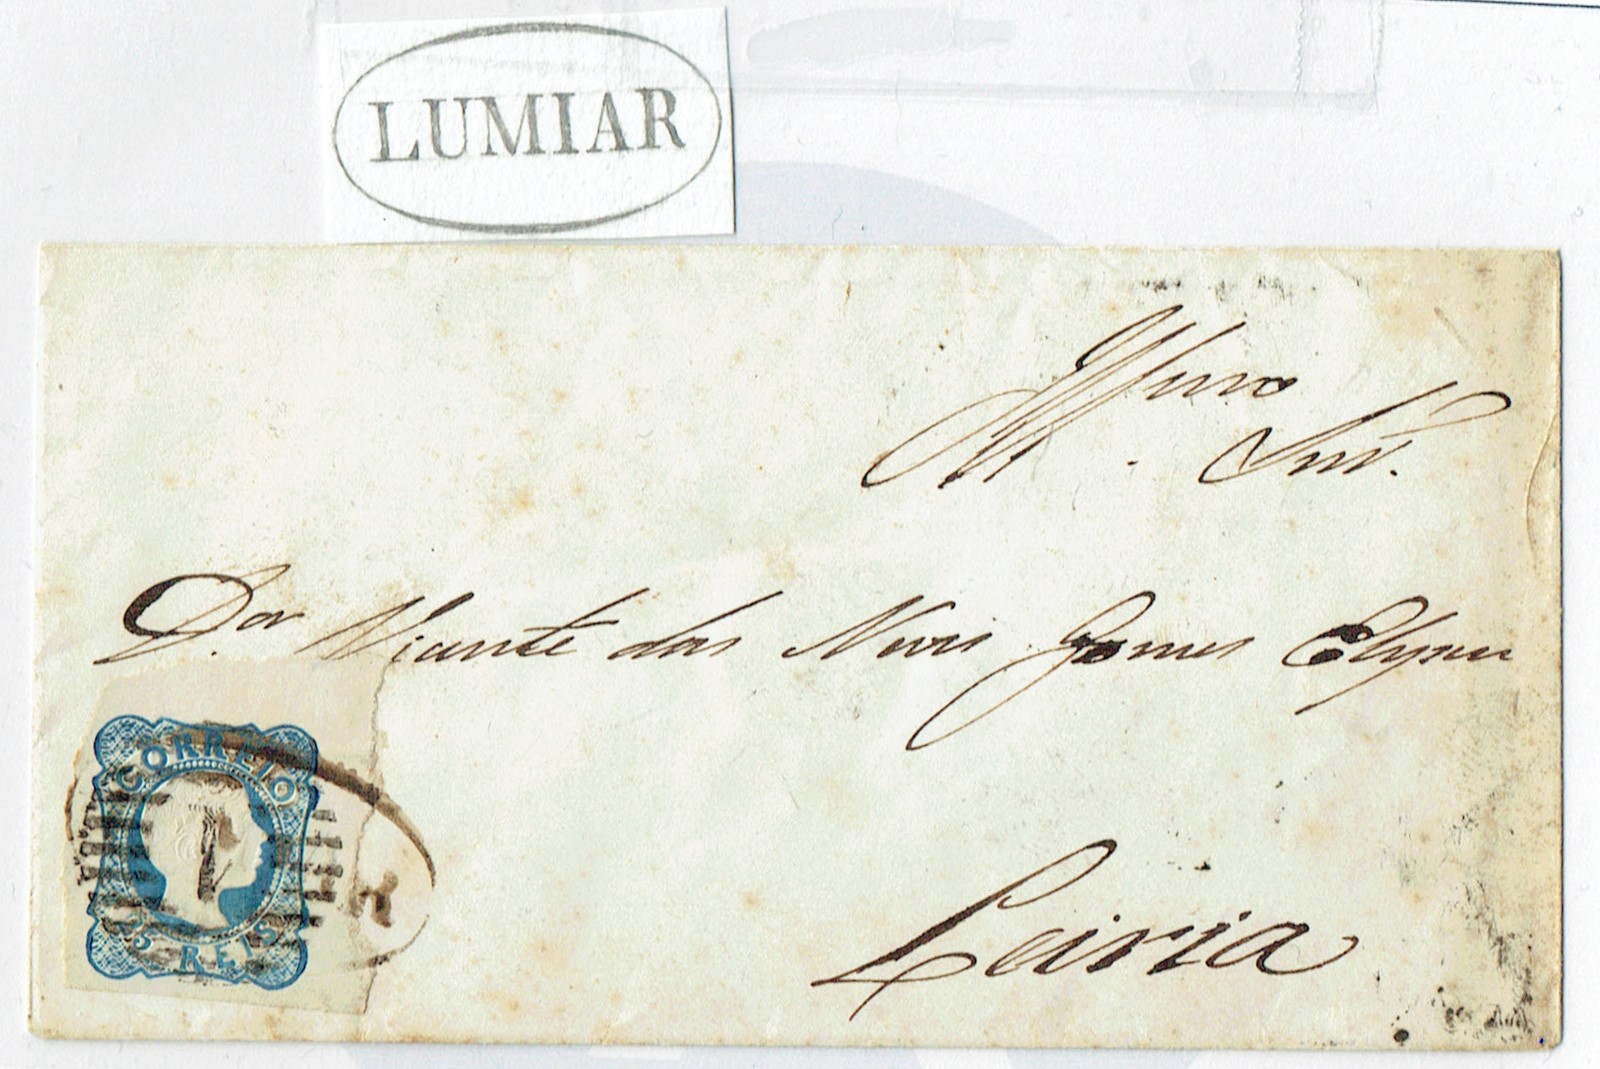 LUMIAR
Illmo
Snr.
Dor Vicente das Neves Gomes Elyseu
CORREIO
1
25 REIS
R
Leiria